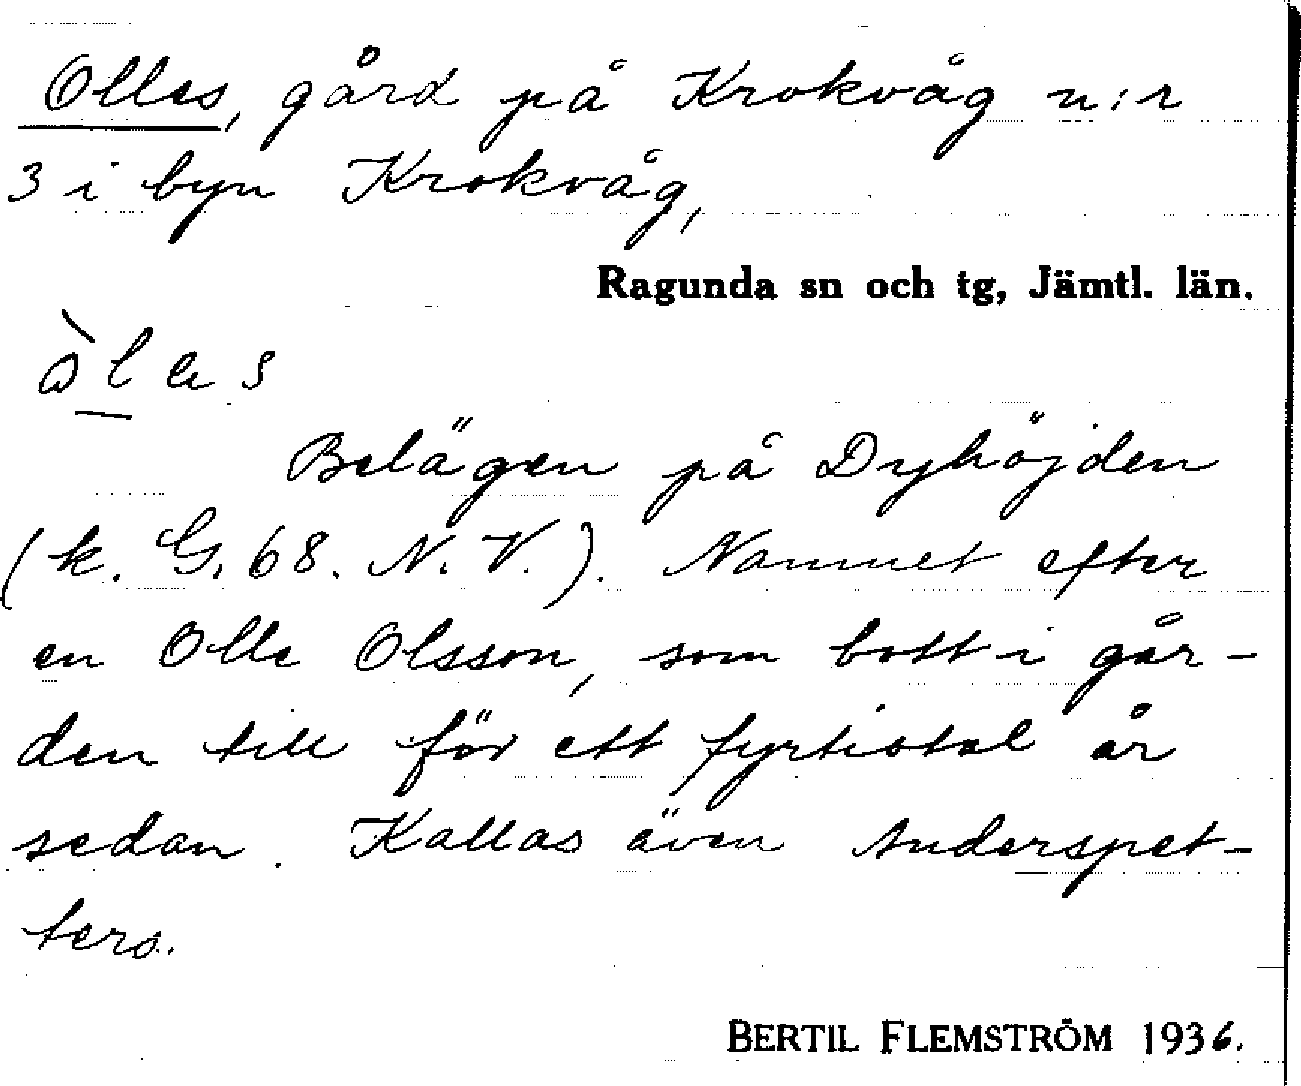 Olles, gård på Krokvåg n:r
3 i byn Krokvåg,
Ragunda sn och tg, Jämtl. län.
Belägen på Dyhöjden
(k. G. 68. N. V.). Namnet efter
en Olle Olsson, som bott i går-
den till för ett fyrtiotal år
sedan. Kallas även Anderspet-
ters.
BERTIL FLEMSTRÖM 1936.